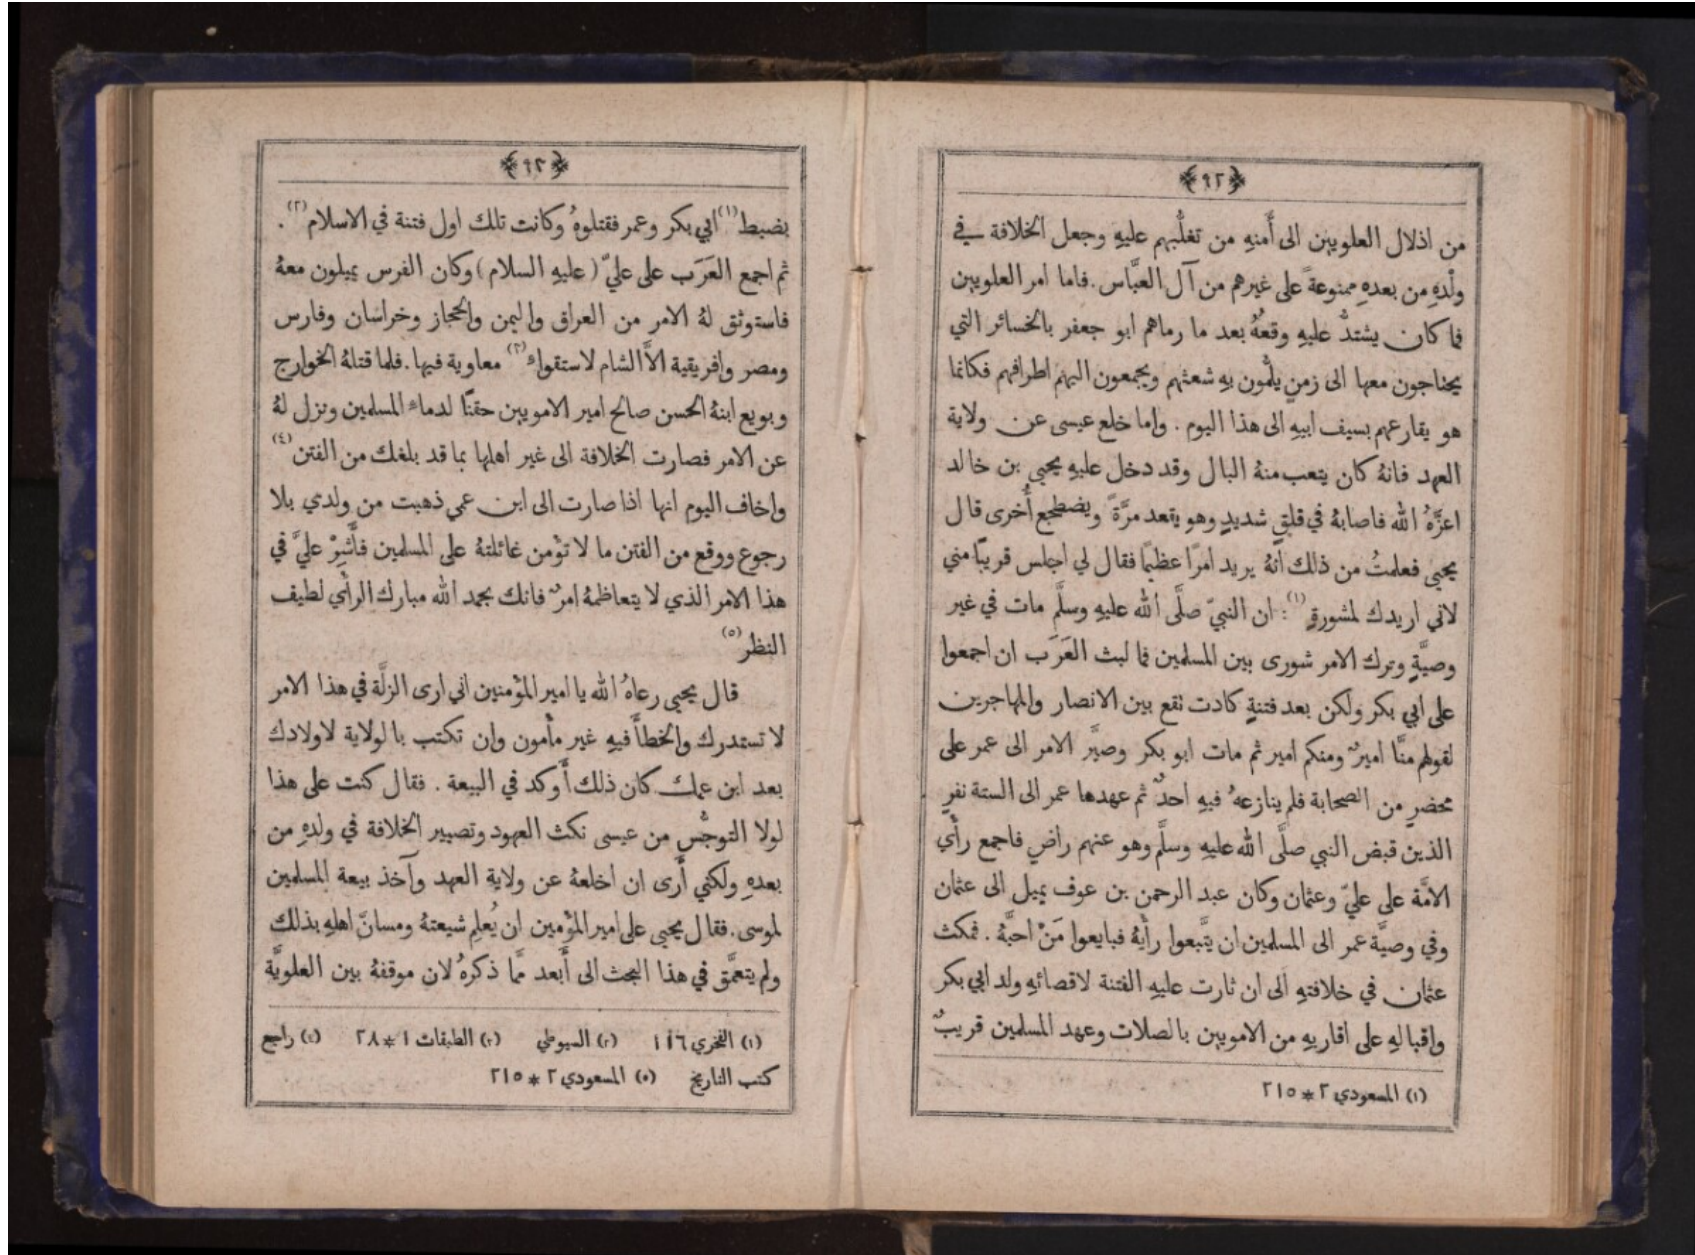 ﴿٩٢﴾
من اذلال العلويين الى أَمنهِ من تغلُّبهم عليهِ وجعل الخلافة في
ولْدهِ من بعدهِ ممنوعةً على غيرهم من آل العبَّاس. فاما امر العلويين
فما كان يشتدُّ عليهِ وقعهُ بعد ما رماهم ابو جعفر بالخسائر التي
يحتاجون معها الى زمنٍ يلُّمون بهِ شعثهم ويجمعون اليهم اطرافهم فكانما
هو يقارعهم بسيف ابيهِ الى هذا اليوم . واما خلع عيسى عن ولاية
العهد فانهُ كان يتعب منهُ البال وقد دخل عليهِ يحيى بن خالد
اعزَّهُ الله فاصابهُ في قلقٍ شديدٍ وهو يقعد مرَّةً ويضطجع أُخرى قال
يحيى فعلمتُ من ذلك انهُ يريد امرًا عظيمًا فقال لي اجلس قريبًا مني
لاني اريدك لمشورةٍ (١) : ان النبيّ صلَّى الله عليهِ وسلَّم مات في غير
وصيَّةٍ وترك الامر شورى بين المسلمين فما لبث العَرَب ان اجمعوا
على ابي بكر ولكن بعد فتنةٍ كادت تقع بين الانصار والمهاجرين
لقولهم منَّا اميرٌ ومنكم امير ثم مات ابو بكر وصيَّر الامر الى عمر على
محضرٍ من الصحابة فلم ينازعهُ فيهِ احدٌ ثم عهدها عمر الى الستة نفرٍ
الذين قبض النبي صلَّى الله عليهِ وسلَّم وهو عنهم راضٍ فاجمع رأْي
الامَّة على عليّ وعثمان وكان عبد الرحمن بن عوف يميل الى عثمان
وفي وصيَّة عمر الى المسلمين ان يتَّبعوا رأْيهُ فبايعوا مَنْ احبَّهُ . فمكث
عثمان في خلافتهِ الى ان ثارت عليهِ الفتنة لاقصائهِ ولد ابي بكر
واقبالهِ على اقاربهِ من الامويين بالصلات وعهد المسلمين قريبٌ
(١) المسعودي ٢ * ٢١٥
﴿٩٣﴾
بضبط (١) ابي بكر وعمر فقتلوهُ وكانت تلك اول فتنة في الاسلام (٢) .
ثم اجمع العَرَب على عليّ (عليهِ السلام) وكان الفرس يميلون معهُ
فاستوثق لهُ الامر من العراق واليمن والحجاز وخراسان وفارس
ومصر وافريقية الَّا الشام لاستقواء (٣) معاوية فيها. فلما قتلهُ الخوارج
وبويع ابنهُ الحسن صالح امير الامويين حقنًا لدماء المسلمين ونزل لهُ
عن الامر فصارت الخلافة الى غير اهلها بما قد بلغك من الفتن (٤)
واخاف اليوم انها اذا صارت الى ابن عمي ذهبت من ولدي بلا
رجوع ووقع من الفتن ما لا تؤْمن غائلتهُ على المسلمين فأَشِرْ عليَّ في
هذا الامر الذي لا يتعاظمهُ امرٌ فانك بحمد الله مبارك الرأْي لطيف
النظر (٥)
قال يحيى رعاهُ الله يا امير المؤْمنين اني ارى الزلَّة في هذا الامر
لا تستدرك والخطأَ فيهِ غير مأْمون وان تكتب بالولاية لاولادك
بعد ابن عمك كان ذلك أَوكد في البيعة . فقال كنت على هذا
لولا التوجُّس من عيسى نكث العهود وتصيير الخلافة في ولدهِ من
بعدهِ ولكني أَرى ان اخلعهُ عن ولاية العهد وآخذ بيعة المسلمين
لموسى. فقال يحيى على امير المؤْمين ان يُعلِم شيعتهُ ومسانَّ اهلهِ بذلك
ولم يتعمَّق في هذا البحث الى أَبعد ممَّا ذكرهُ لان موقفهُ بين العلويَّة
(١) الفخري ١١٦ (٢) السيوطي (٣) الطبقات ١ * ٢٨ (٤) راجع
كتب التاريخ (٥) المسعودي ٢ * ٢١٥